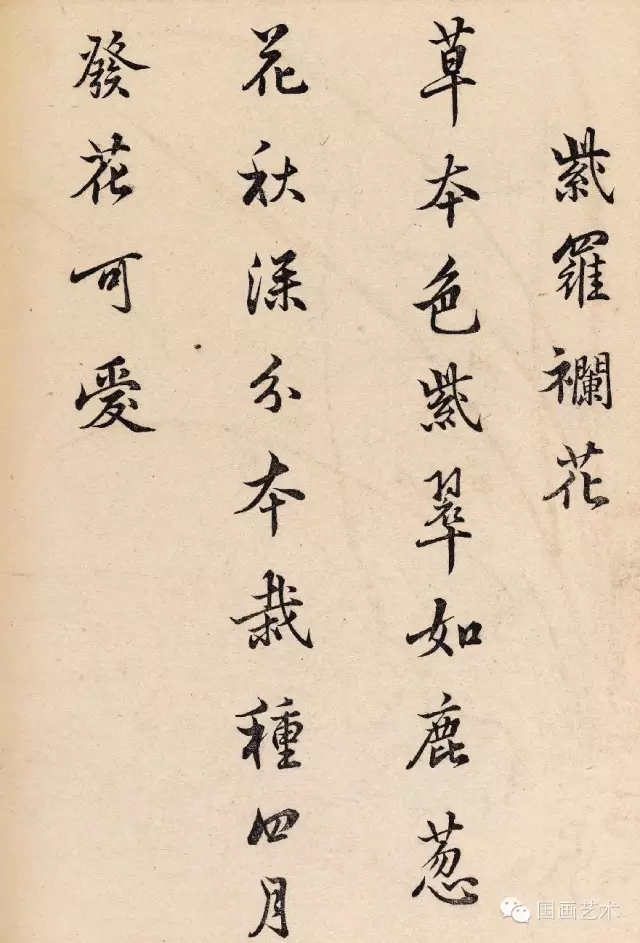 紫羅襴花
草本色紫翠如鹿葱
花秋深分本栽種四月
發花可愛
国画艺术